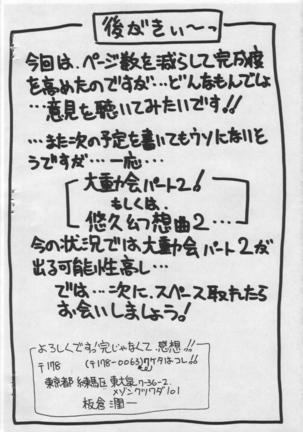 後がきぃ〜っ
今回は、ページ数を減らして完成度
を高めたのですが…どんなもんでしょ
…意見を聴いてみたいです!!
…また次の予定を書いてもウソになりそ
うですが…一応…
大動会パート2!
もしくは、
悠久幻想曲2…
今の状況では、大動会パート2が
出る可能性高し…
では…次に、スペース取れたら
お会いしましょう!
よろしくです!完じゃなくて感想!!
〒178 (〒178-0063) 7ケタはコレ!!
東京都 練馬区 東大泉 7-36-2
メゾンクワダ101
板倉潤一